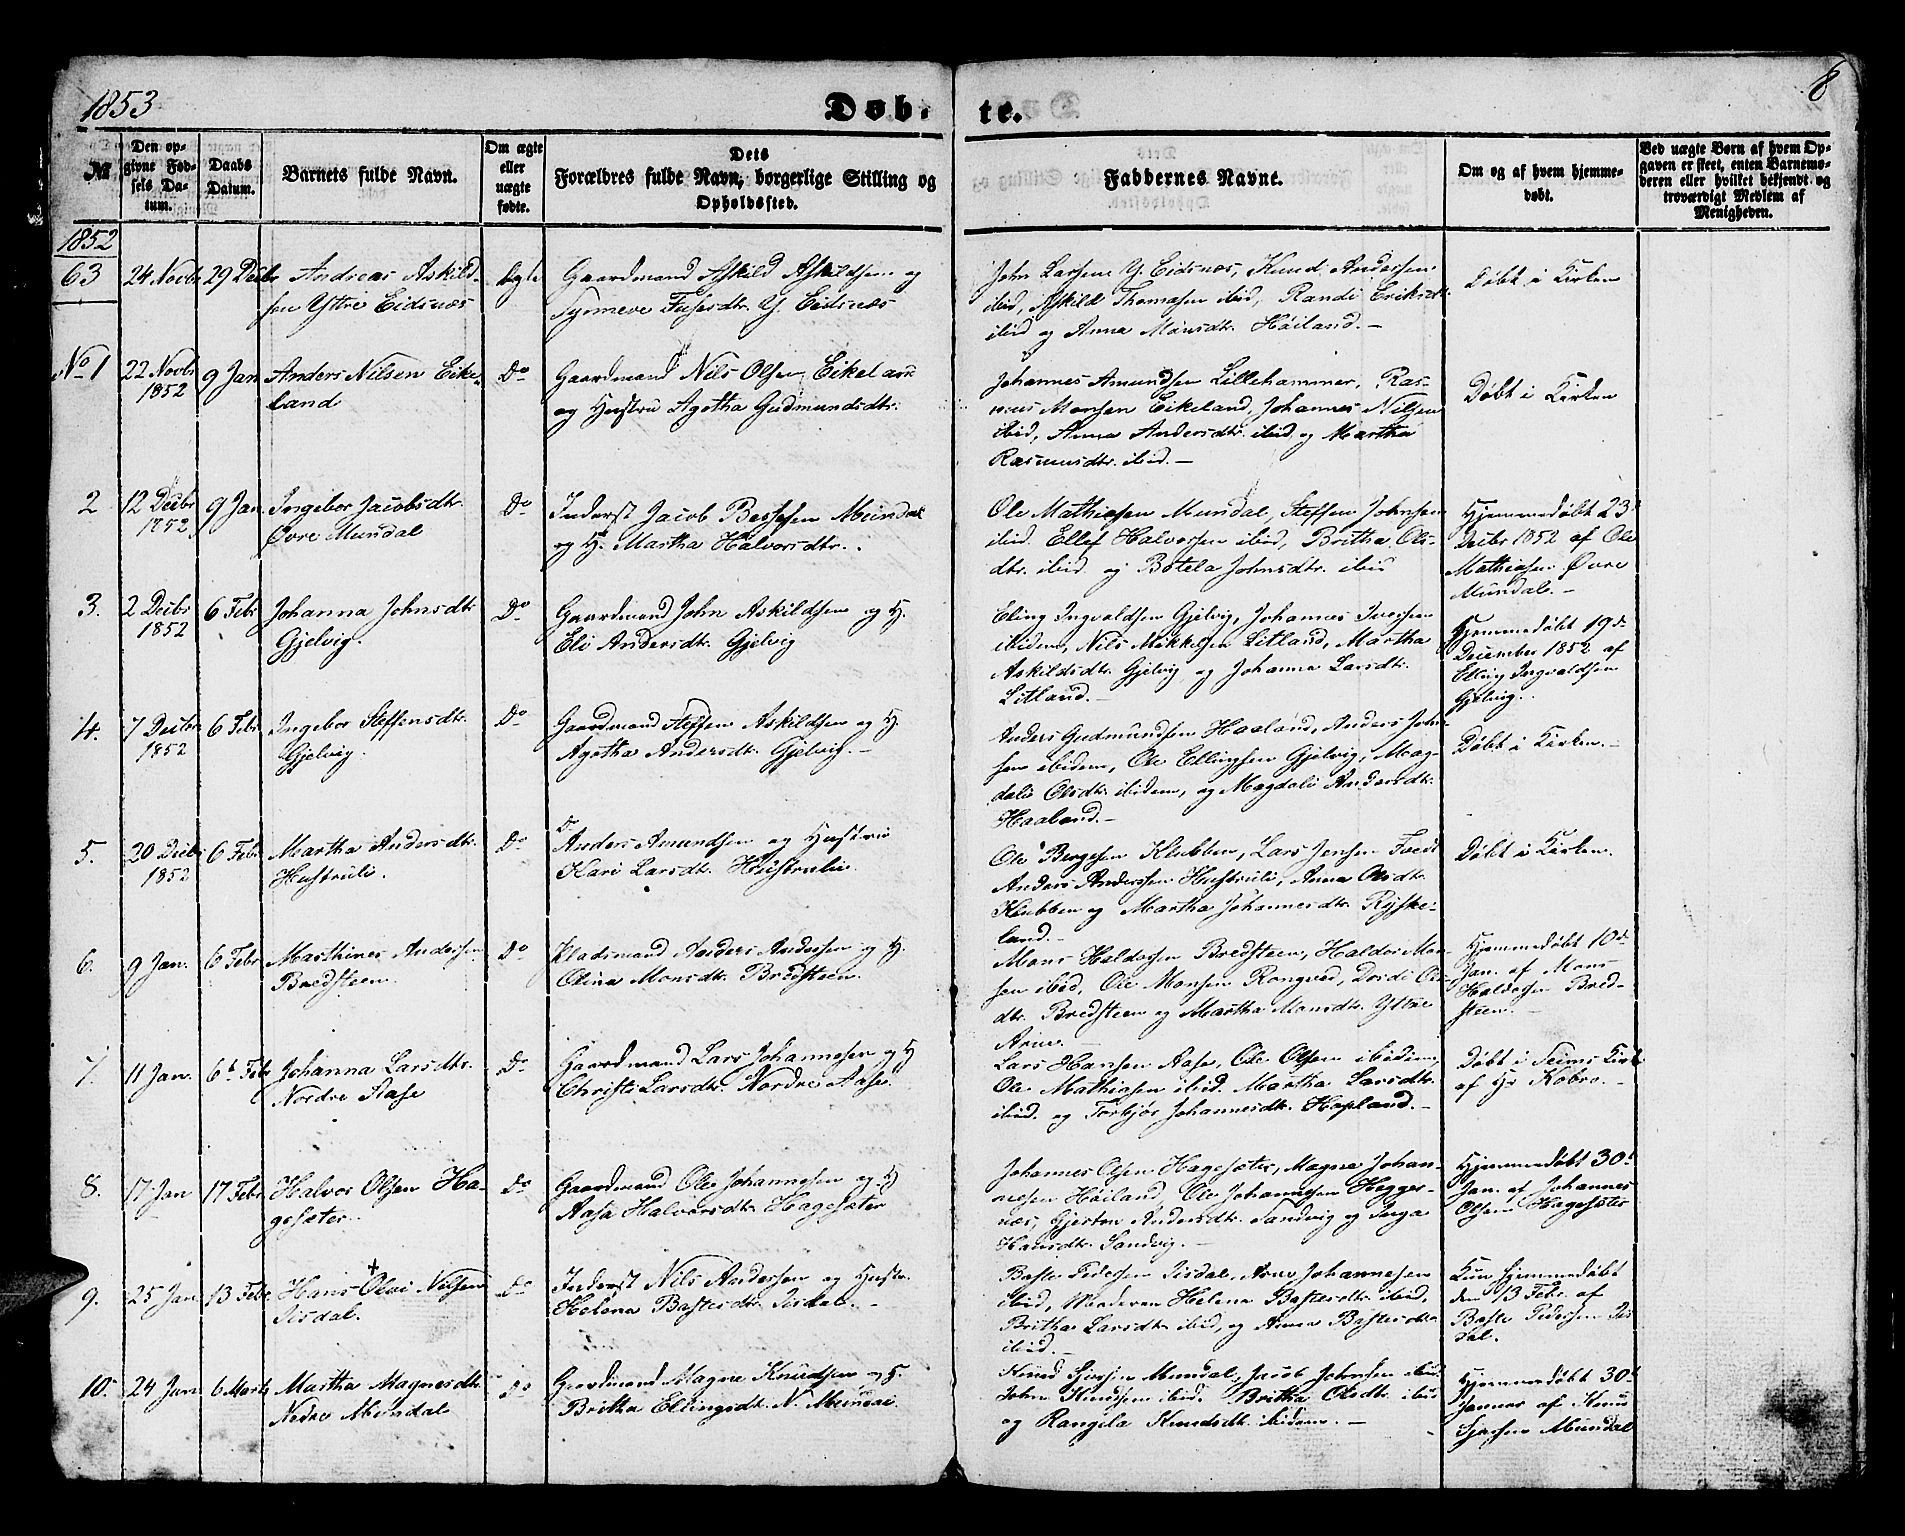 1853
Døb-
te.
8
№
Den op-
givne Fød-
sels Da-
tum.
Daabs
Datum.
Barnets fulde Navn.
Om ægte
eller
uægte
fødte.
Dets
Forældres fulde Navn, borgerlige Stilling og
Opholdssted.
Faddernes Navne.
Om og af hvem hjemme-
døbt.
Ved uægte Børn af hvem Op-
gaven er skeet, enten Barnemo-
deren eller hvilket bekjendt og
troværdigt Medlem af
Menigheden.
1852
63
24 Novbr
29 Decbr
Andreas Askild-
sen Yttre Eidsnæs
Ægte
Gaardmand Askild Askildsen og
Synneve Fusesdtr. Y. Eidsnæs
John Larsen Y. Eidsnæs, Knud Andersen
ibid, Askild Thomasen ibid, Randi Eriksdtr.
ibid og Anna Monsdtr. Høiland.-
Døbt i Kirken
No 1
22 Novbr
1852
9 Jan
Anders Nilsen Eike-
land
Do
Gaardmand Nils Olsen Eikeland
og Hustru Agotha Gudmundsdtr.
Johannes Amundsen Lillehammer, Ras-
mus Monsen Eikeland, Johannes Nilsen
ibid, Anna Andersdtr. ibid og Martha
Rasmusdtr. ibid.-
Døbt i Kirken
2
12 Decbr
1852
9 Jan.
Ingebor Jacobsdtr.
Øvre Mundal
Do
Inderst Jacob Bessesen Mundal
og H. Martha Halvorsdtr.
Ole Mathiasen Mundal, Steffen Johnsen
ibid. Ellef Halvorsen ibid, Britha Ols-
dtr. ibid og Botela Johnsdtr. ibid
Hjemmedøbt 23d
Decbr 1852 af Ole
Mathiasen Øvre
Mundal.-
3.
2 Decbr
1852
6 Febr
Johanna Johnsdtr
Gjelvig.
Do
Gaardmand John Askildsen og H.
Eli Andersdtr. Gjelvig
Eling Ingvaldsen Gjelvig, Johannes Iversen
ibidem, Nils Mikkelsen Litland, Martha
Askildsdtr. Gjelvig og Johanna Larsdtr.
Litland.-
Hjemmedøbt 19de
December 1852 af
Elling Ingvaldsen
Gjelvig.
4.
7 Decbr
1852
6 Febr
Ingebor Steffensdtr.
Gjelvig.
Do
Gaardmand Steffen Askildsen og H.
Agotha Andersdtr. Gjelvig.-
Anders Gudmundsen Haaland, Anders John-
sen ibidem, Ole Ellingsen Gjelvig, Mag-
dali Olsdtr. ibidem, og Magdali Andersdtr.
Haaland.-
Døbt i Kirken.-
5.
20 Decbr
1852
6 Febr
Martha Andersdtr.
Hustruli.
Do
Do
Anders Amundsen og Hustru
Kari Larsdtr. Hustruli.
Ole Bergesen Klubben, Lars Jensen
Anders Anderssen Hustruli, Anna Olsdtr.
Klubben og Martha Johannesdtr. Ryske-
land.-
Døbt i Kirken.
6.
9 Jan.
6 Febr
Marthines Andersen
Bredsteen.
Do
Pladsmand Anders Andersen og H.
Olina Monsdtr. Bredsteen.
Mons Haldorsen Bredsteen, Haldor Mon-
sen ibid, Ole Monsen Rongved, Dordi Ols-
dtr. Bredsteen og Martha Monsdtr. Yttre
Arne.-
Hjemmedøbt 10de
Jan. af Mons
Haldorsen Bred-
steen.-
7.
11 Jan.
6te Febr
Johanna Larsdtr.
Nordre Aase
Do
Gaardmand Lars Johannesen og H
Christi Larsdtr. Nordre Aase.
Lars Hanssen Aase, Ole Olsen ibidem,
Ole Mathiasen ibid. Martha Larsdtr.
ibid. og Torbjør Johannesdtr. Hopland.-
Døbt i Seims Kirke
af Hr Kobro.-
8.
17 Jan
17 Febr
Halvor Olsen Ha-
gesæter.
Do
Gaardmand Ole Johannesen og H
Aasa Halvorsdtr. Hagesæter
Johannes Olsen Hagesæter, Magne Johan-
nesen Høiland, Ole Johannesen Hegger-
næs, Gjerton Andersdtr. Sandvig og Inga
Hansdtr. Sandvig.-
Hjemmedøbt 30d
Jan. af Johannes
Olsen Hagesæter
9.
25 Jan
13 Febr
Hans Olai Nilsen
Tisdal.
Do
Inderst Nils Andersen og Hustr.
Helena Bastesdtr. Tisdal.-
Baste Pedersen Tisdal, Arne Johannesen
ibid, Moderen Helena Bastesdtr. ibid,
Britha Larsdtr. ibid, og Anna Bastesdtr.
ibid.-
Kun hjemmedøbt
den 13 Febr. af
Baste Pedersen Tis
dal.-
10.
24 Jan
6 Marts
Martha Magnesdtr.
Nedre Mundal
Do
Gaardmand Magne Knudsen og H.
Britha Ellingsdtr. N. Mundal.
Knud Sjursen Mundal, Jacob Johnsen ibid.
John Knudsen ibid. Britha Olsdtr. ibid
og Rangela Knudsdtr. ibidem.-
Hjemmedøbt 30d
Januar af Knud
Sjursen Mundal